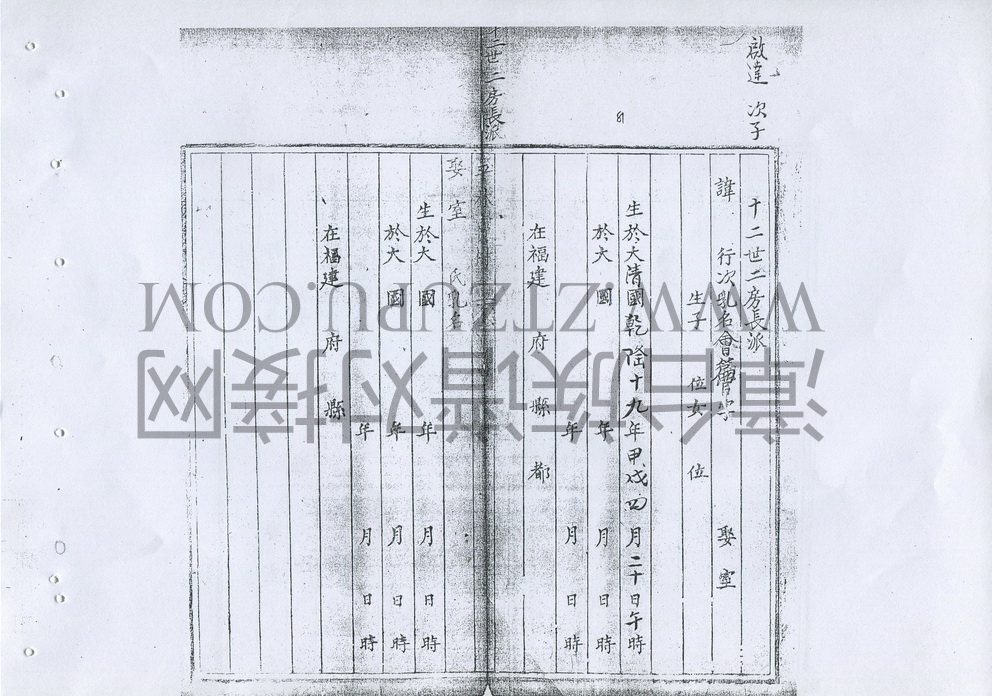 啟達 次子
十二世二房長派
諱 行次乳名會篇 字 娶室
生子 位女 位
生於大清國乾隆十九年甲戌四月二十日午時
於大 國 年 月 日 時
年 月 日 時
在福建 府 縣 都
81
十二世二房長派
娶室 氏乳名
生於大 國 年 月 日 時
於大 國 年 月 日 時
年 月 日
在福建 府 縣
WWW.ZTZUPU.COM
漳台族谱对接网